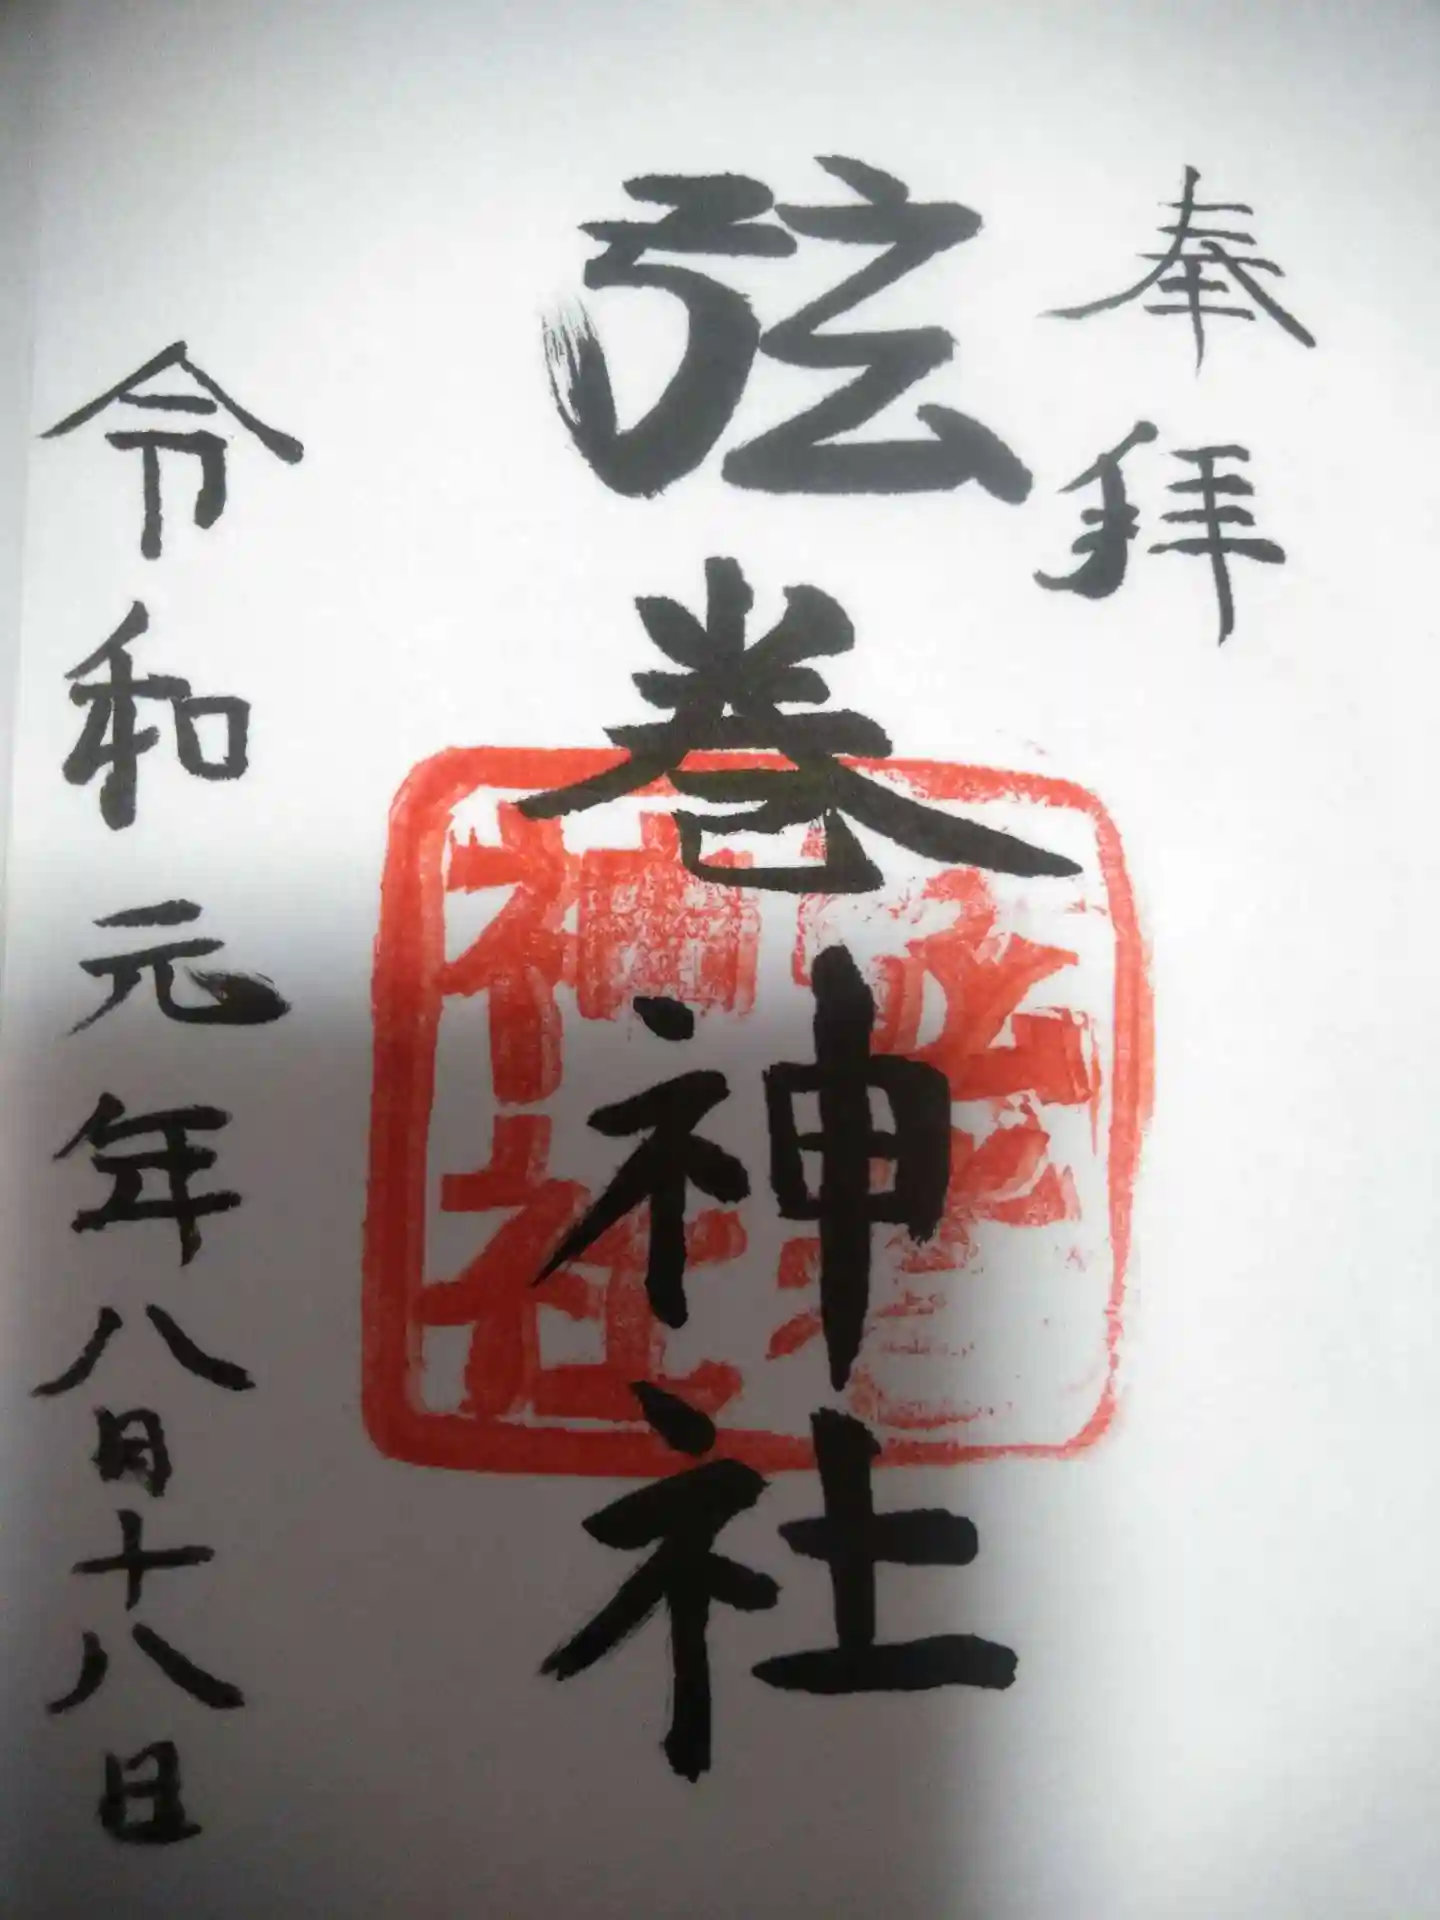 奉拝
弦巻神社
令和元年八月十八日
神社